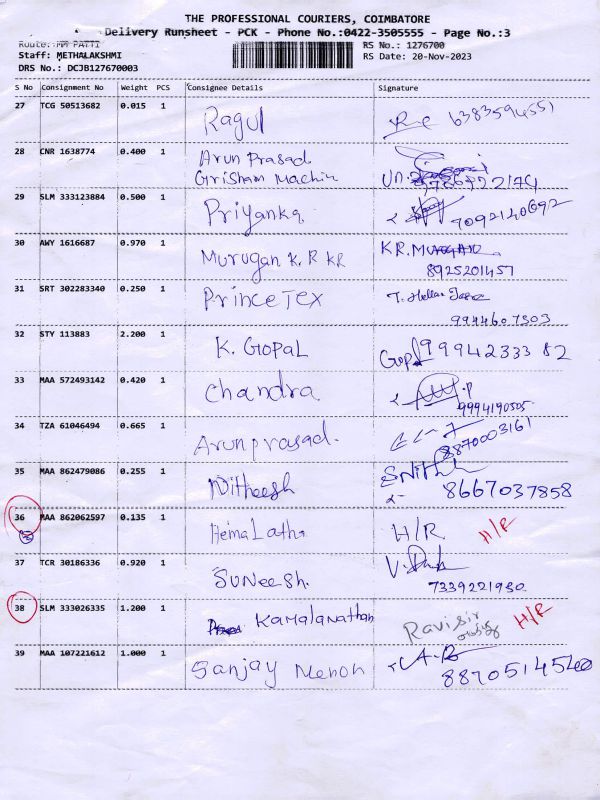 THE PROFESSIONAL COURIERS, COIMBATORE
Delivery Runsheet - PCK - Phone No.:0422-3505555 - Page No.:3
Route: MM PATTI
RS No.: 1276700
Staff: METHALAKSHMI
RS Date: 20-Nov-2023
DRS No.: DCJB127670003
S No Consignment No Weight PCS Consignee Details Signature
27 TCG 50513682 0.015 1 Ragul 6383594551
28 CNR 1638774 0.400 1 Arun Prasad
Grisham Machin
29 SLM 333123884 0.500 1 Priyanka 7092140692
30 AWY 1616687 0.970 1 Murugan K.R KR KR.
8925201457
31 SRT 302283340 0.250 1 Prince Tex
9944607303
32 STY 113883 2.200 1 K. GOPAL Gopl 9994233382
33 MAA 572493142 0.420 1 Chandra
9994190505
34 TZA 61046494 0.665 1 Arun prasad. 8870003161
35 MAA 862479086 0.255 1 Nitheesh
8667037858
36 MAA 862062597 0.135 1 Hema Latha H/R H/R
37 TCR 30186336 0.920 1 SUNeesh.
7339221930
38 SLM 333026335 1.200 1 Kamalanathan Ravi sir H/R
39 MAA 107221612 1.000 1 Sanjay Menon
8870514540